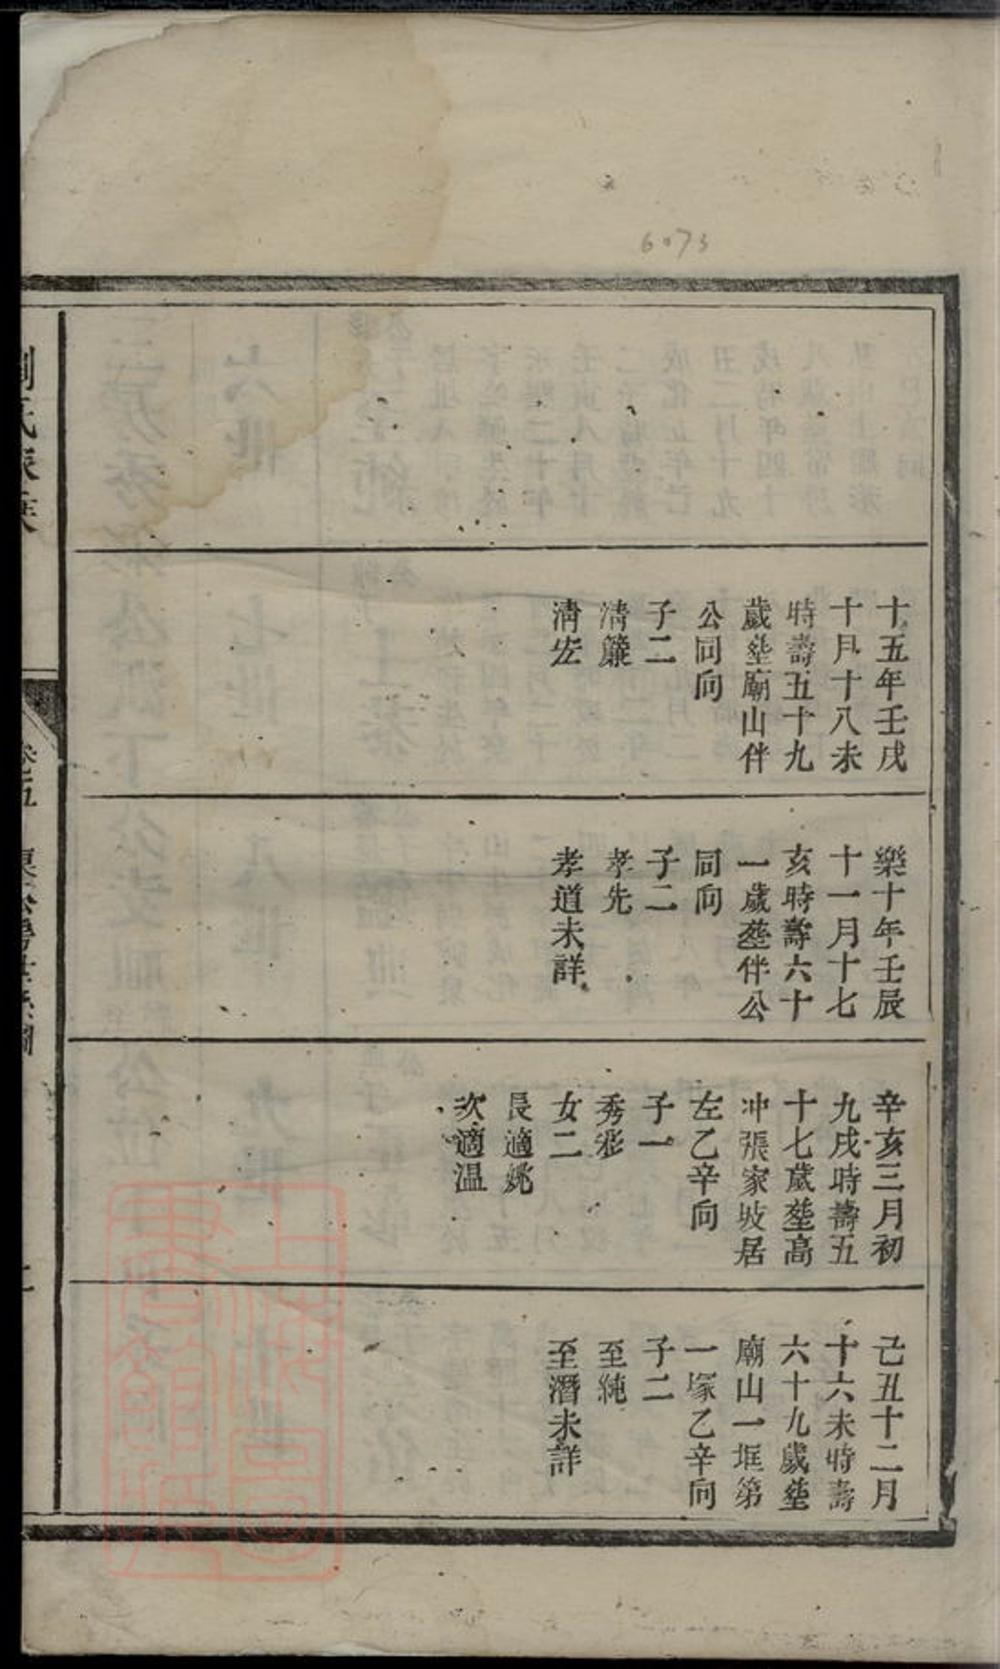 6073
十五年壬戌
十月十八未
時壽五十九
歲塟廟山伴
公同向
子二
清簾
清宏
樂十年壬辰
十一月十七
亥時壽六十
一歲塟伴公
同向
子二
孝先
孝道未詳
辛亥三月初
九戌時壽五
十七歲塟高
冲張家坡居
左乙辛向
子一
秀彩
女二
長適姚
次適温
己丑十二月
十六未時壽
六十九歲塟
廟山一堆第
一塚乙辛向
子二
至純
至潛未詳